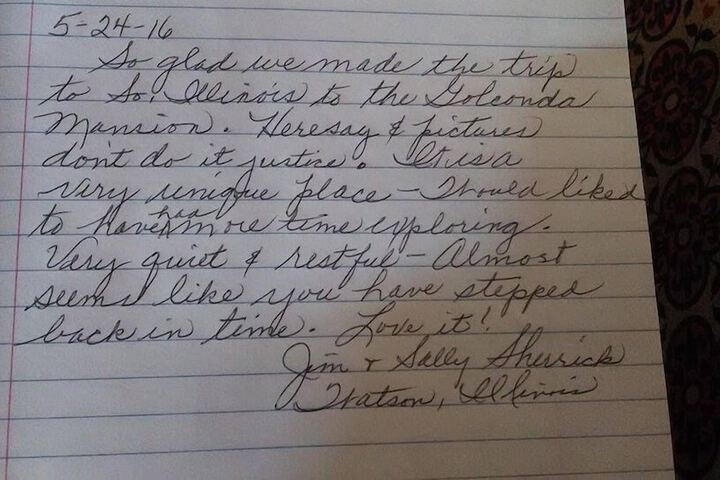 5-24-16
So glad we made the trip
to So. Illinois to the Golconda
Mansion. Heresay & pictures
don't do it justice. It is a
very unique place - Would liked
to have had more time exploring.
Very quiet & restful - Almost
seems like you have stepped
back in time. Love it!
Jim + Sally Sherrick
Watson, Illinois